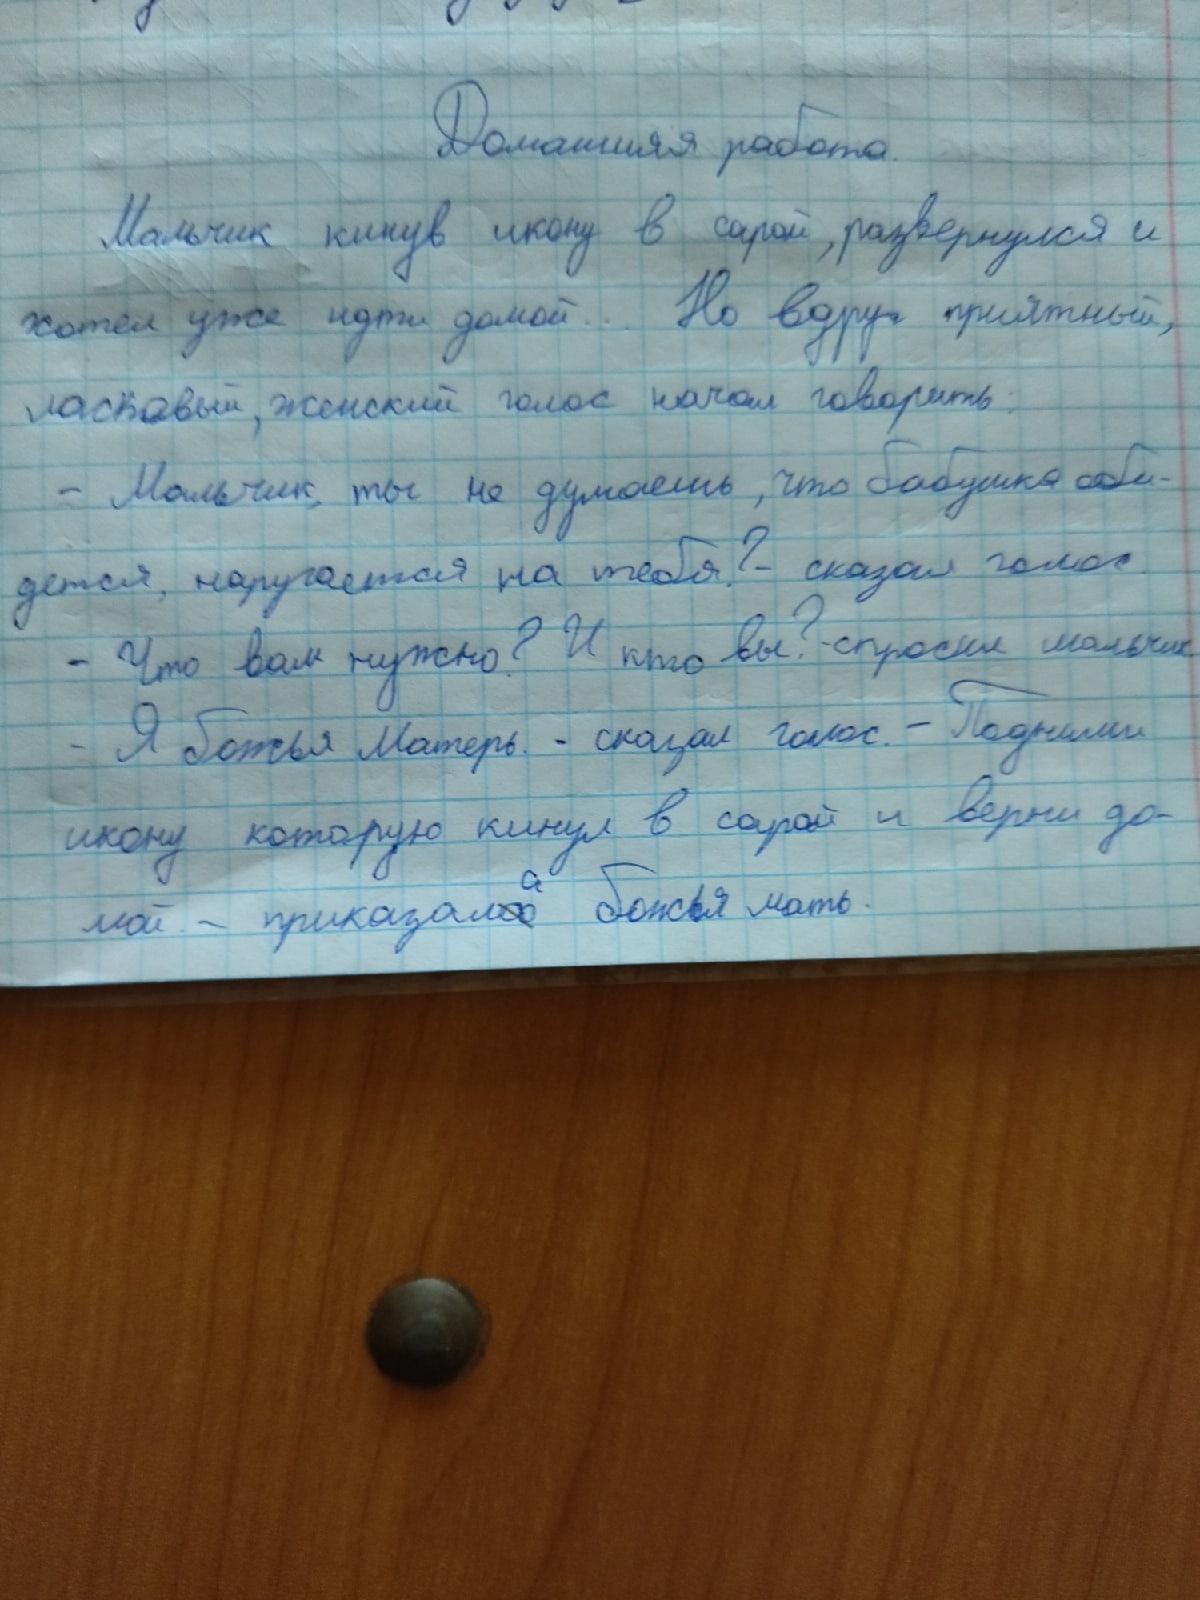 Домашняя работа.
Мальчик кинув икону в сарай, развернулся и
хотел уже идти домой... Но вдруг приятный,
ласковый, женский голос начал говорить:
- Мальчик, ты не думаешь, что бабушка оби-
дется, наругается на тебя? - сказал голос.
- Что вам нужно? И кто вы? - спросил мальчик
- Я божья Матерь. - сказал голос. - Подними
икону которую кинул в сарай и верни до-
мой. - приказала божья мать.